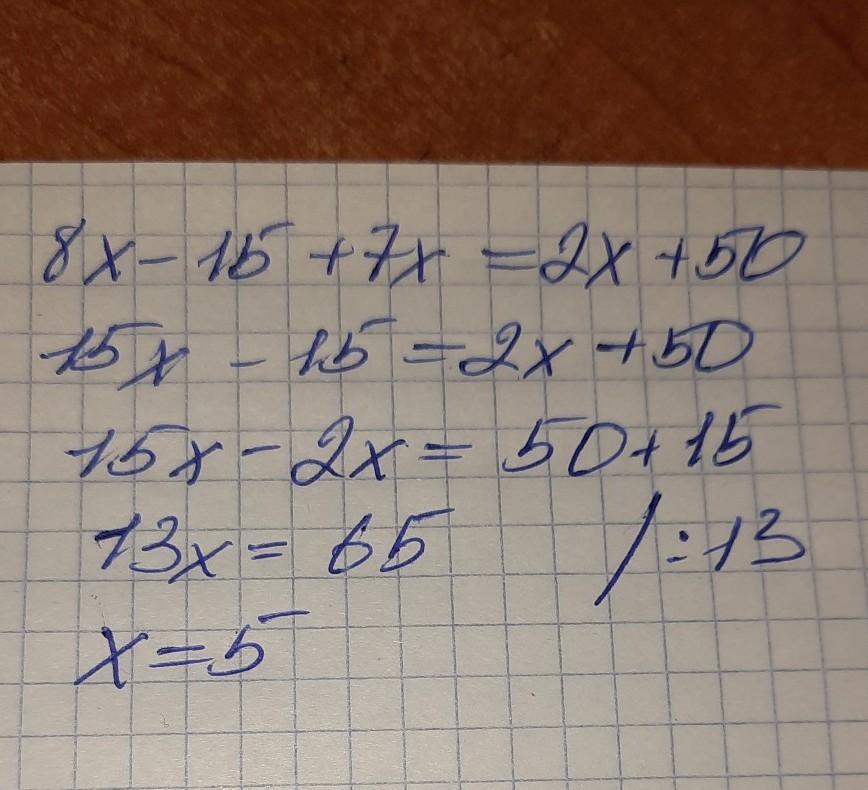 8x - 15 + 7x = 2x + 50
15x - 15 = 2x + 50
15x - 2x = 50 + 15
13x = 65 / : 13
x = 5